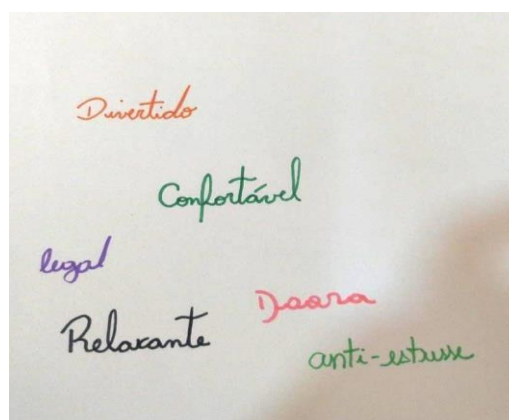 Divertido
Confortável
legal
Daora
Relaxante
anti-estresse